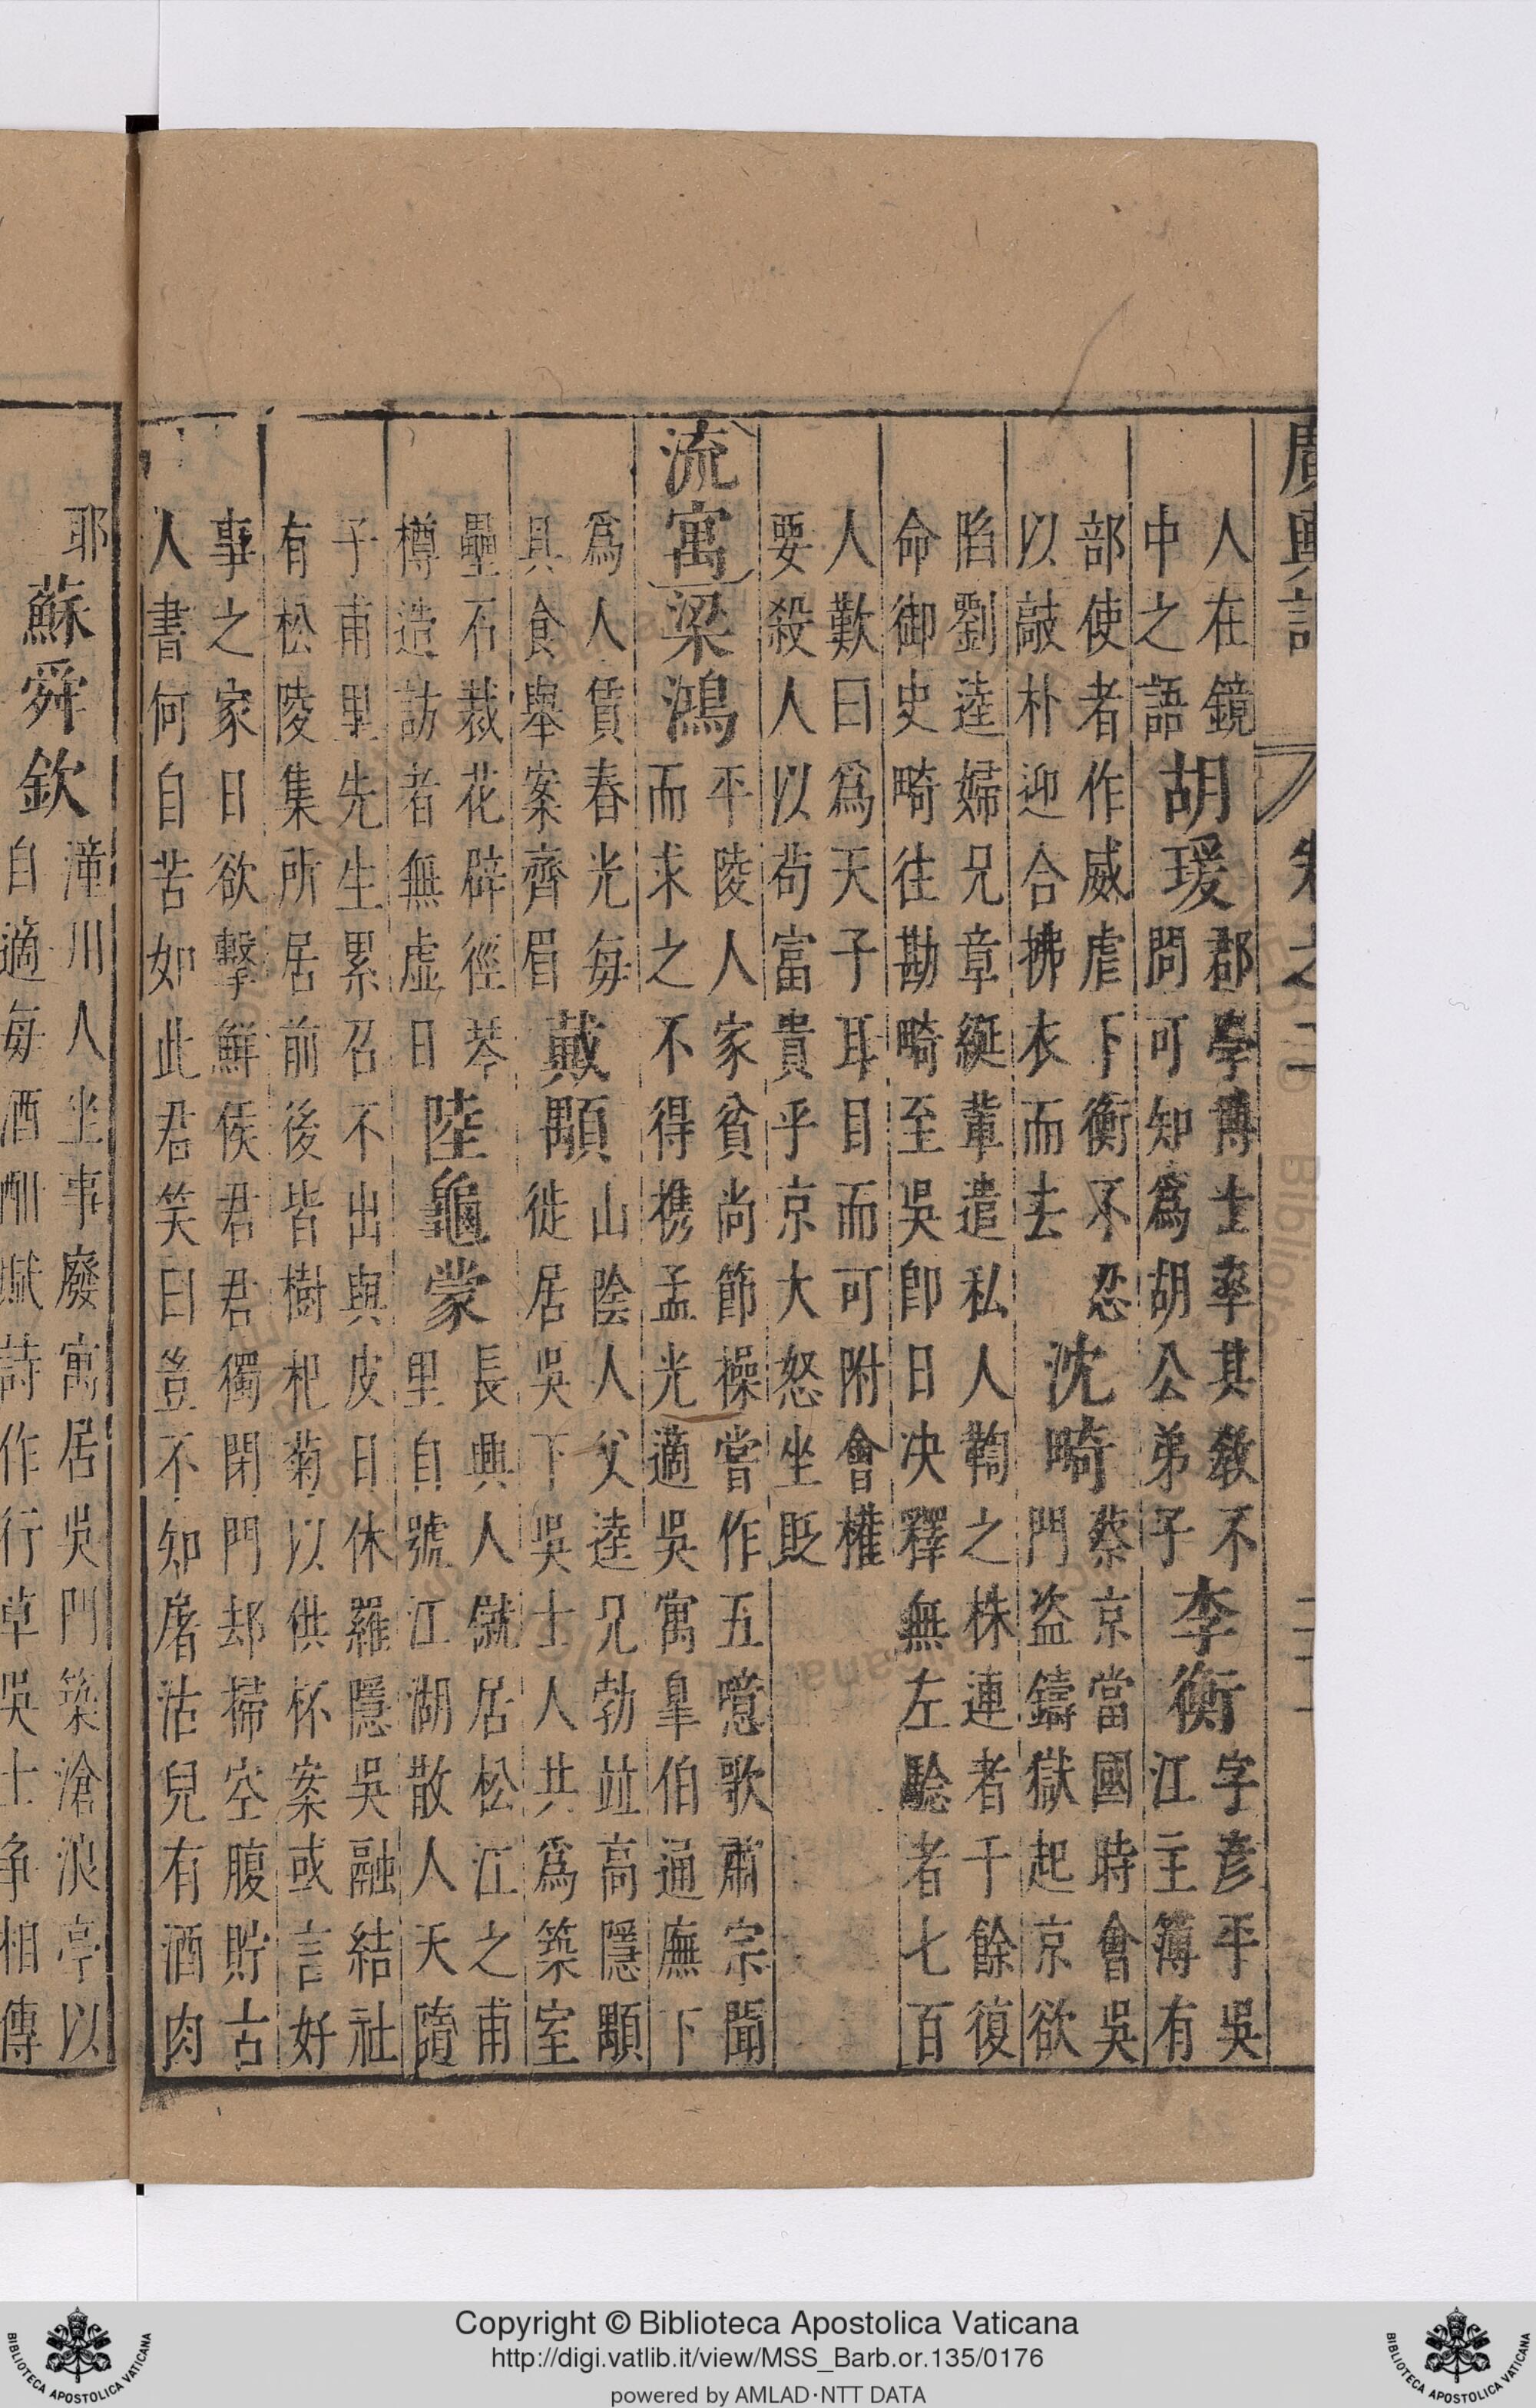 廣輿記 卷之三
人在鏡中之語胡瑗郡學博士率其敎不問可知爲胡公弟子李衡字彦平吳江主簿有
部使者作威虐下衡不忍以敲朴迎合拂衣而去沈畸蔡京當國時會吳門盜鑄獄起京欲
陷劉逵婦兄章綖輩遣私人鞫之株連者千餘復命御史畸往勘畸至吳卽日决釋無左騐者七百
人歎曰爲天子耳目而可附會權要殺人以茍富貴乎京大怒坐貶
流寓梁鴻平陵人家貧尚節操嘗作五噫歌肅宗聞而求之不得携孟光適吳寓臯伯通廡下
爲人賃舂光每具食舉案齊眉戴顒山陰人父逵兄勃竝高隱顒徙居吳下吳士人共爲築室
壘石裁花辟徑琴樽造訪者無虛日陸龜蒙長興人僦居松江之甫里自號江湖散人天隨
子甫里先生累召不出與皮日休羅隱吳融結社有松陵集所居前後皆樹杞菊以供杯案或言好
事之家日欲擊鮮矦君君獨閉門却掃空腹貯古人書何自苦如此君笑曰豈不知屠沽兒有酒肉
耶蘇舜欽潼川人坐事廢寓居吳門築滄浪亭以自適每酒酣賦詩作行草吳士争相傳
Copyright © Biblioteca Apostolica Vaticana
http://digi.vatlib.it/view/MSS_Barb.or.135/0176
powered by AMLAD·NTT DATA
BIBLIOTECA APOSTOLICA VATICANA
BIBLIOTECA APOSTOLICA VATICANA